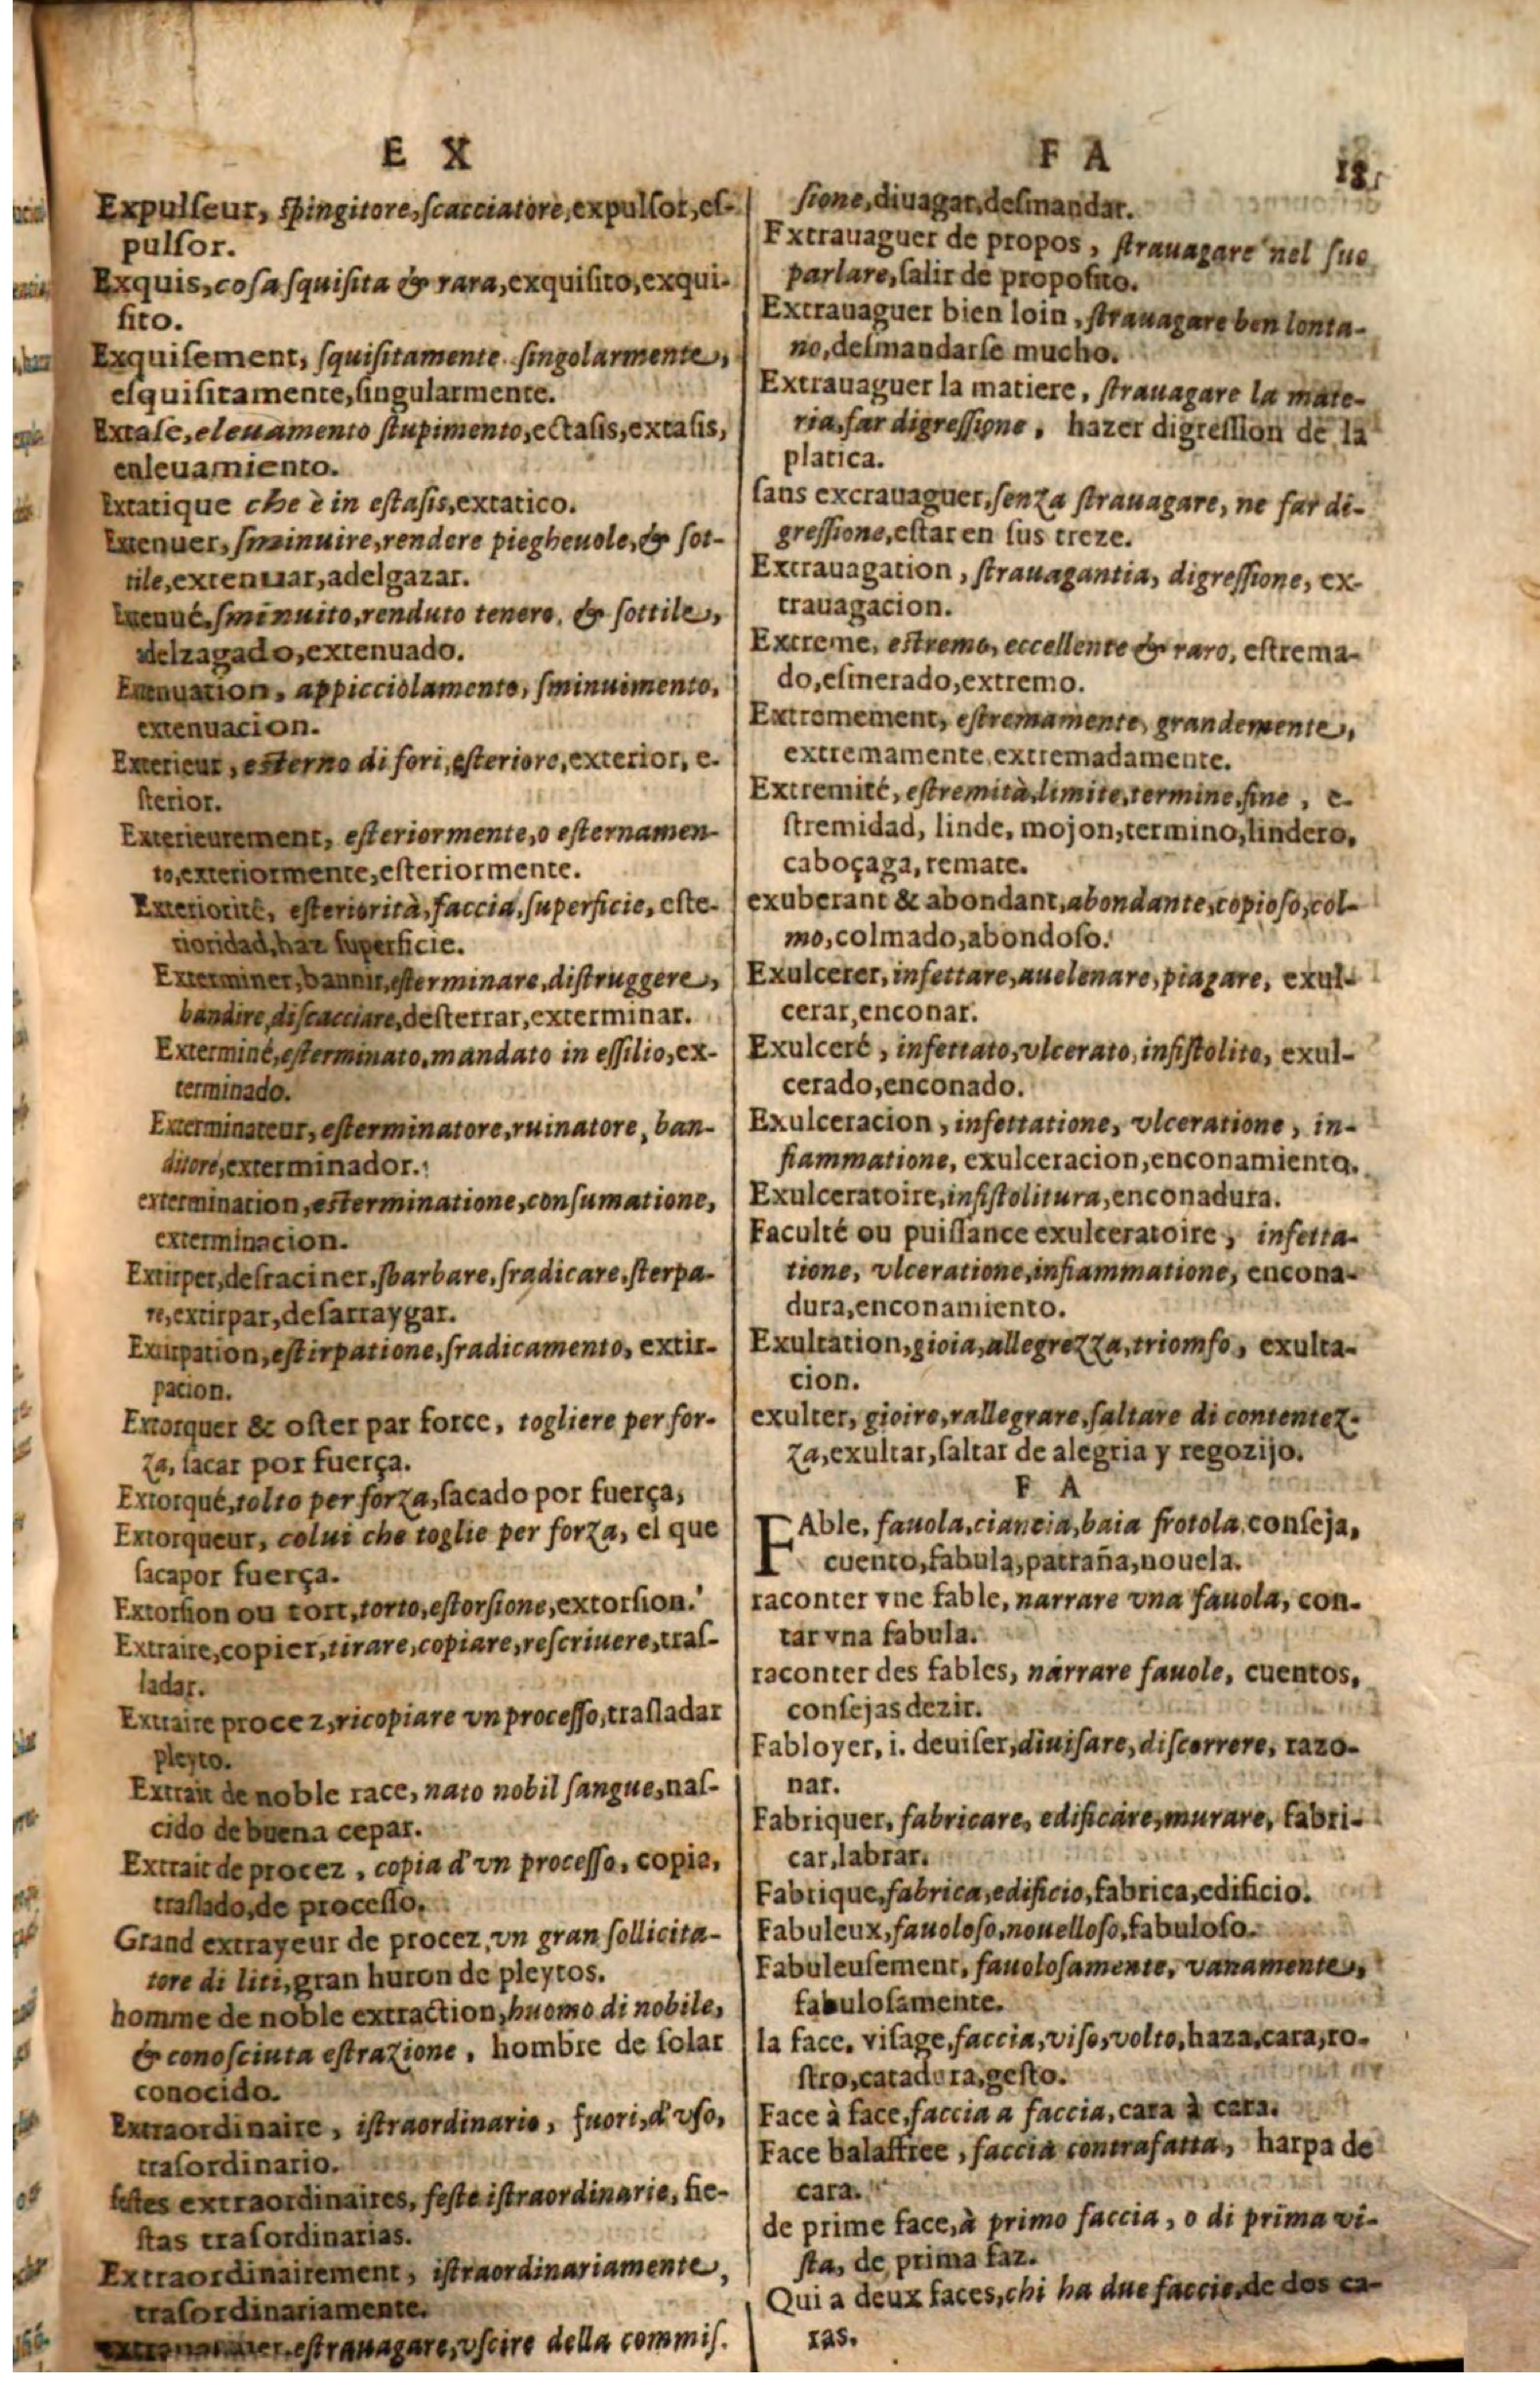 E X
Expulſeur, ſpingitore, ſcacciatore, expulſor, eſ-
pulſor.
Exquis, coſa ſquiſita & rara, exquiſito, exqui-
ſito.
Exquiſement, ſquiſitamente ſingolarmente,
eſquiſitamente, ſingularmente.
Extaſe, eleuamento ſtupimento, ectaſis, extaſis,
enleuamiento.
Extatique che è in eſtaſis, extatico.
Extenuer, ſminuire, rendere piegheuole, & ſot-
tile, extenuar, adelgazar.
Extenué, ſminuito, renduto tenero, & ſottile,
adelzagado, extenuado.
Extenuation, appicciolamento, ſminuimento,
extenuacion.
Exterieur, eſterno di fori, eſteriore, exterior, e-
ſterior.
Exterieurement, eſteriormente, o eſternamen-
to, exteriormente, eſteriormente.
Exteriorité, eſteriorità, faccia, ſuperficie, eſte-
rioridad, haz ſuperficie.
Exterminer, bannir, eſterminare, diſtruggere,
bandire, diſcacciare, deſterrar, exterminar.
Exterminé, eſterminato, mandato in eſſilio, ex-
terminado.
Exterminateur, eſterminatore, ruinatore, ban-
ditore, exterminador.
extermination, eſterminatione, conſumatione,
exterminacion.
Extirper, deſraciner, ſbarbare, ſradicare, ſterpa-
re, extirpar, deſarraygar.
Extirpation, eſtirpatione, ſradicamento, extir-
pacion.
Extorquer & oſter par force, togliere per for-
za, ſacar por fuerça.
Extorqué, tolto per forza, ſacado por fuerça,
Extorqueur, colui che toglie per forza, el que
ſacapor fuerça.
Extorſion ou tort, torto, eſtorſione, extorſion.
Extraire, copier, tirare, copiare, reſcriuere, traſ-
ladar.
Extraire procez, ricopiare vn proceſſo, traſladar
pleyto.
Extrait de noble race, nato nobil ſangue, naſ-
cido de buena cepar.
Extrait de procez, copia d'vn proceſſo, copia,
traſlado, de proceſſo.
Grand extrayeur de procez, vn gran ſollicita-
tore di liti, gran huron de pleytos.
homme de noble extraction, huomo di nobile,
& conoſciuta eſtrazione, hombre de ſolar
conocido.
Extraordinaire, iſtraordinario, fuori, d'vſo,
traſordinario.
feſtes extraordinaires, feſte iſtraordinarie, fie-
ſtas traſordinarias.
Extraordinairement, iſtraordinariamente,
traſordinariamente.
eſtrauagare, vſcire della commiſ.
F A
ſione, diuagar, deſmandar.
Extrauaguer de propos, ſtrauagare nel ſuo
parlare, ſalir de propoſito.
Extrauaguer bien loin, ſtrauagare ben lonta-
no, deſmandarſe mucho.
Extrauaguer la matiere, ſtrauagare la mate-
ria, far digreſſione, hazer digreſſion de la
platica.
ſans excrauaguer, ſenza ſtrauagare, ne far di-
greſſione, eſtar en ſus treze.
Extrauagation, ſtrauagantia, digreſſione, ex-
trauagacion.
Extreme, eſtremo, eccellente & raro, eſtrema-
do, eſmerado, extremo.
Extromement, eſtremamente, grandemente,
extremamente, extremadamente.
Extremité, eſtremità, limite, termine, fine, e-
ſtremidad, linde, mojon, termino, lindero,
caboçaga, remate.
exuberant & abondant, abondante, copioſo, col-
mo, colmado, abondoſo.
Exulcerer, infettare, auelenare, piagare, exul-
cerar, enconar.
Exulceré, infettato, vlcerato, infiſtolito, exul-
cerado, enconado.
Exulceracion, infettatione, vlceratione, in-
fiammatione, exulceracion, enconamiento.
Exulceratoire, infiſtolitura, enconadura.
Faculté ou puiſſance exulceratoire, infetta-
tione, vlceratione, infiammatione, encona-
dura, enconamiento.
Exultation, gioia, allegrezza, triomfo, exulta-
cion.
exulter, gioire, rallegrare, ſaltare di contentez-
za, exultar, ſaltar de alegria y regozijo.
F A
FAble, fauola, ciancia, baia frotola, conſeja,
cuento, fabula, patraña, nouela.
raconter vne fable, narrare vna fauola, con-
tar vna fabula.
raconter des fables, narrare fauole, cuentos,
conſejas dezir.
Fabloyer, i. deuiſer, diuiſare, diſcorrere, razo-
nar.
Fabriquer, fabricare, edificare, murare, fabri-
car, labrar.
Fabrique, fabrica, edificio, fabrica, edificio.
Fabuleux, fauoloſo, nouelloſo, fabuloſo.
Fabuleuſement, fauoloſamente, vanamente,
fabuloſamente.
la face, viſage, faccia, viſo, volto, haza, cara, ro-
ſtro, catadura, geſto.
Face à face, faccia a faccia, cara à cara.
Face balaffree, faccia contrafatta, harpa de
cara.
de prime face, à primo faccia, o di prima vi-
ſta, de prima faz.
Qui a deux faces, chi ha due faccie, de dos ca-
ras.